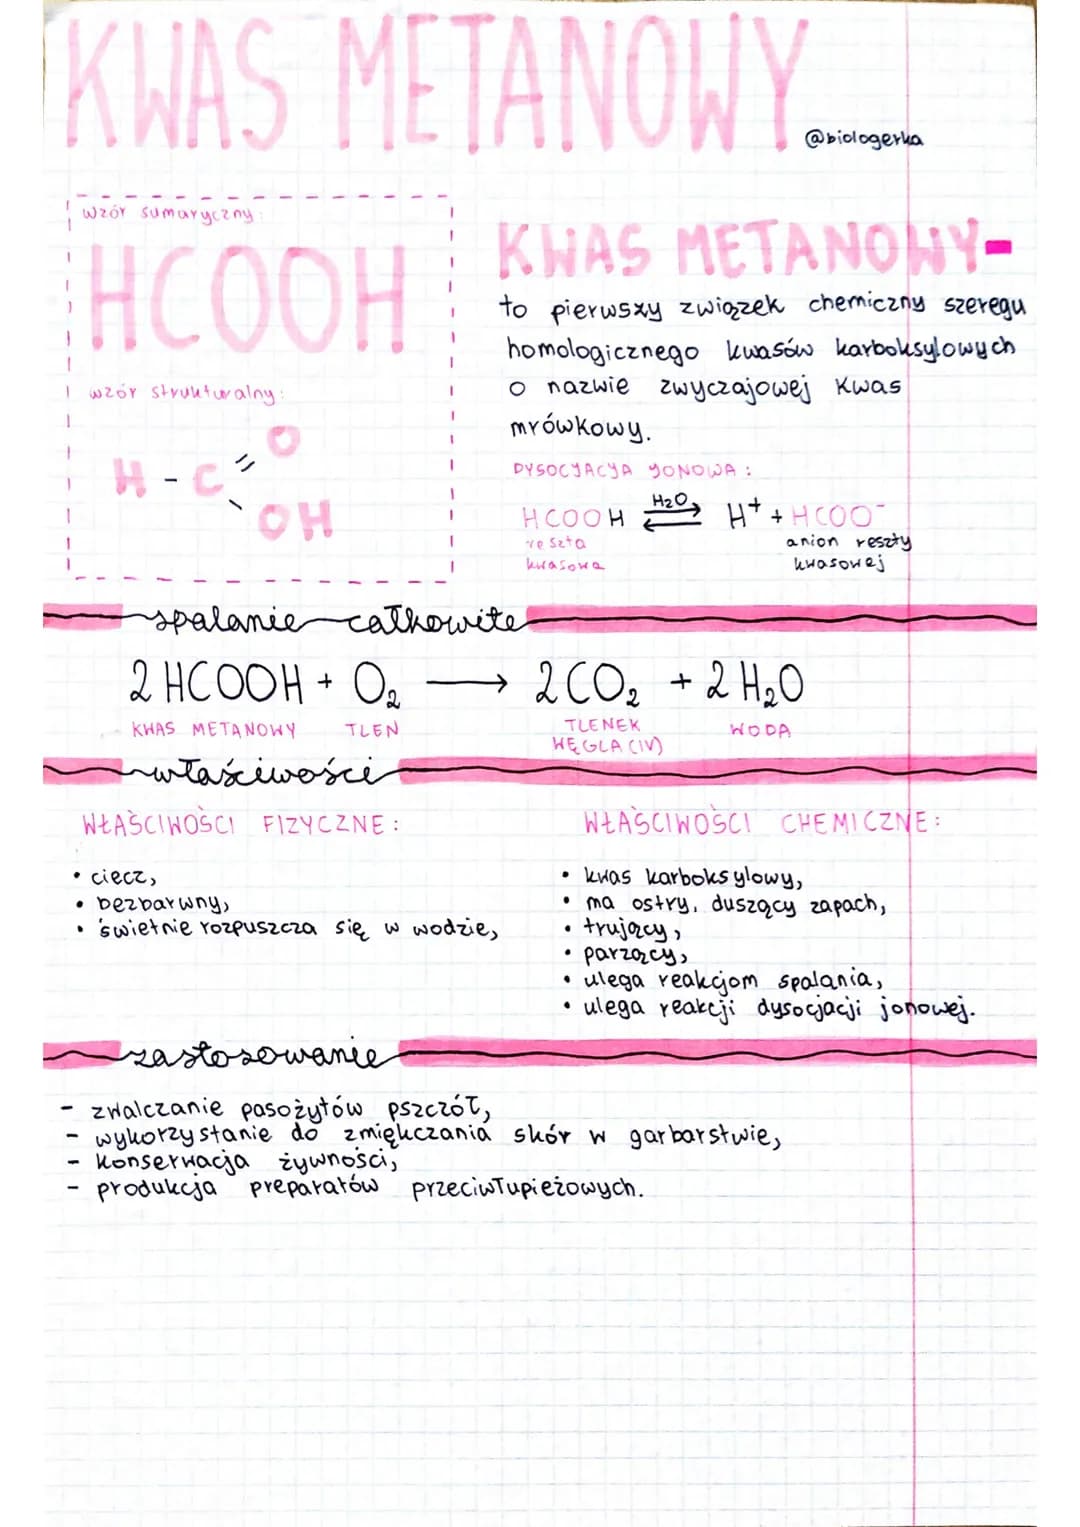 KWAS METANOWY
@biologerka
wzór sumaryczny:
HCOOH
wzór strukturalny:
H - C
= O
- OH
KWAS METANOWY-
to pierwszy związek chemiczny szeregu
homologicznego kwasów karboksylowych
o nazwie zwyczajowej kwas
mrówkowy.
DYSOCJACJA JONOWA:
HCOOH ⇌ H₂O H⁺ + HCOO⁻
reszta
kwasowa
anion reszty
kwasowej
spalanie całkowite
2 HCOOH + O₂ → 2CO₂ + 2 H₂O
KWAS METANOWY TLEN TLENEK WĘGLA (IV) WODA
właściwości
WŁAŚCIWOŚCI FIZYCZNE:
• ciecz,
• bezbarwny,
• świetnie rozpuszcza się w wodzie,
WŁAŚCIWOŚCI CHEMICZNE:
• kwas karboksylowy,
• ma ostry, duszący zapach,
• trujący,
• parzący,
• ulega reakcjom spalania,
• ulega reakcji dysocjacji jonowej.
zastosowanie
- zwalczanie pasożytów pszczół,
- wykorzystanie do zmiękczania skór w garbarstwie,
- konserwacja żywności,
- produkcja preparatów przeciwłupieżowych.